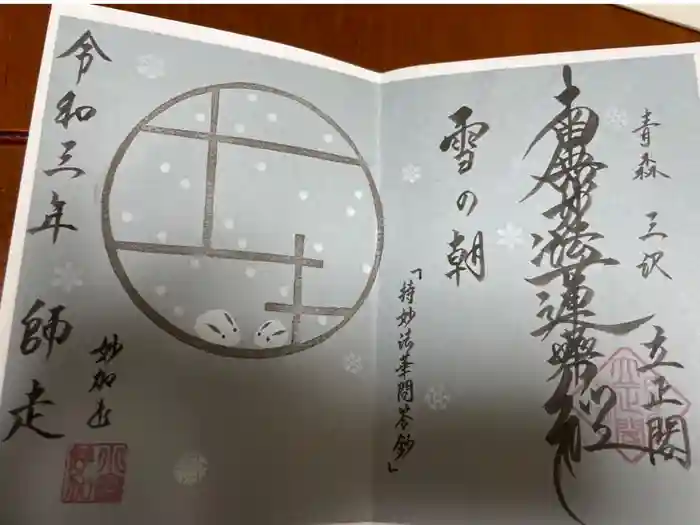 青森 三沢 立正閣
南無妙法蓮華経
雪の朝
「持妙法華問答鈔」
令和三年 師走